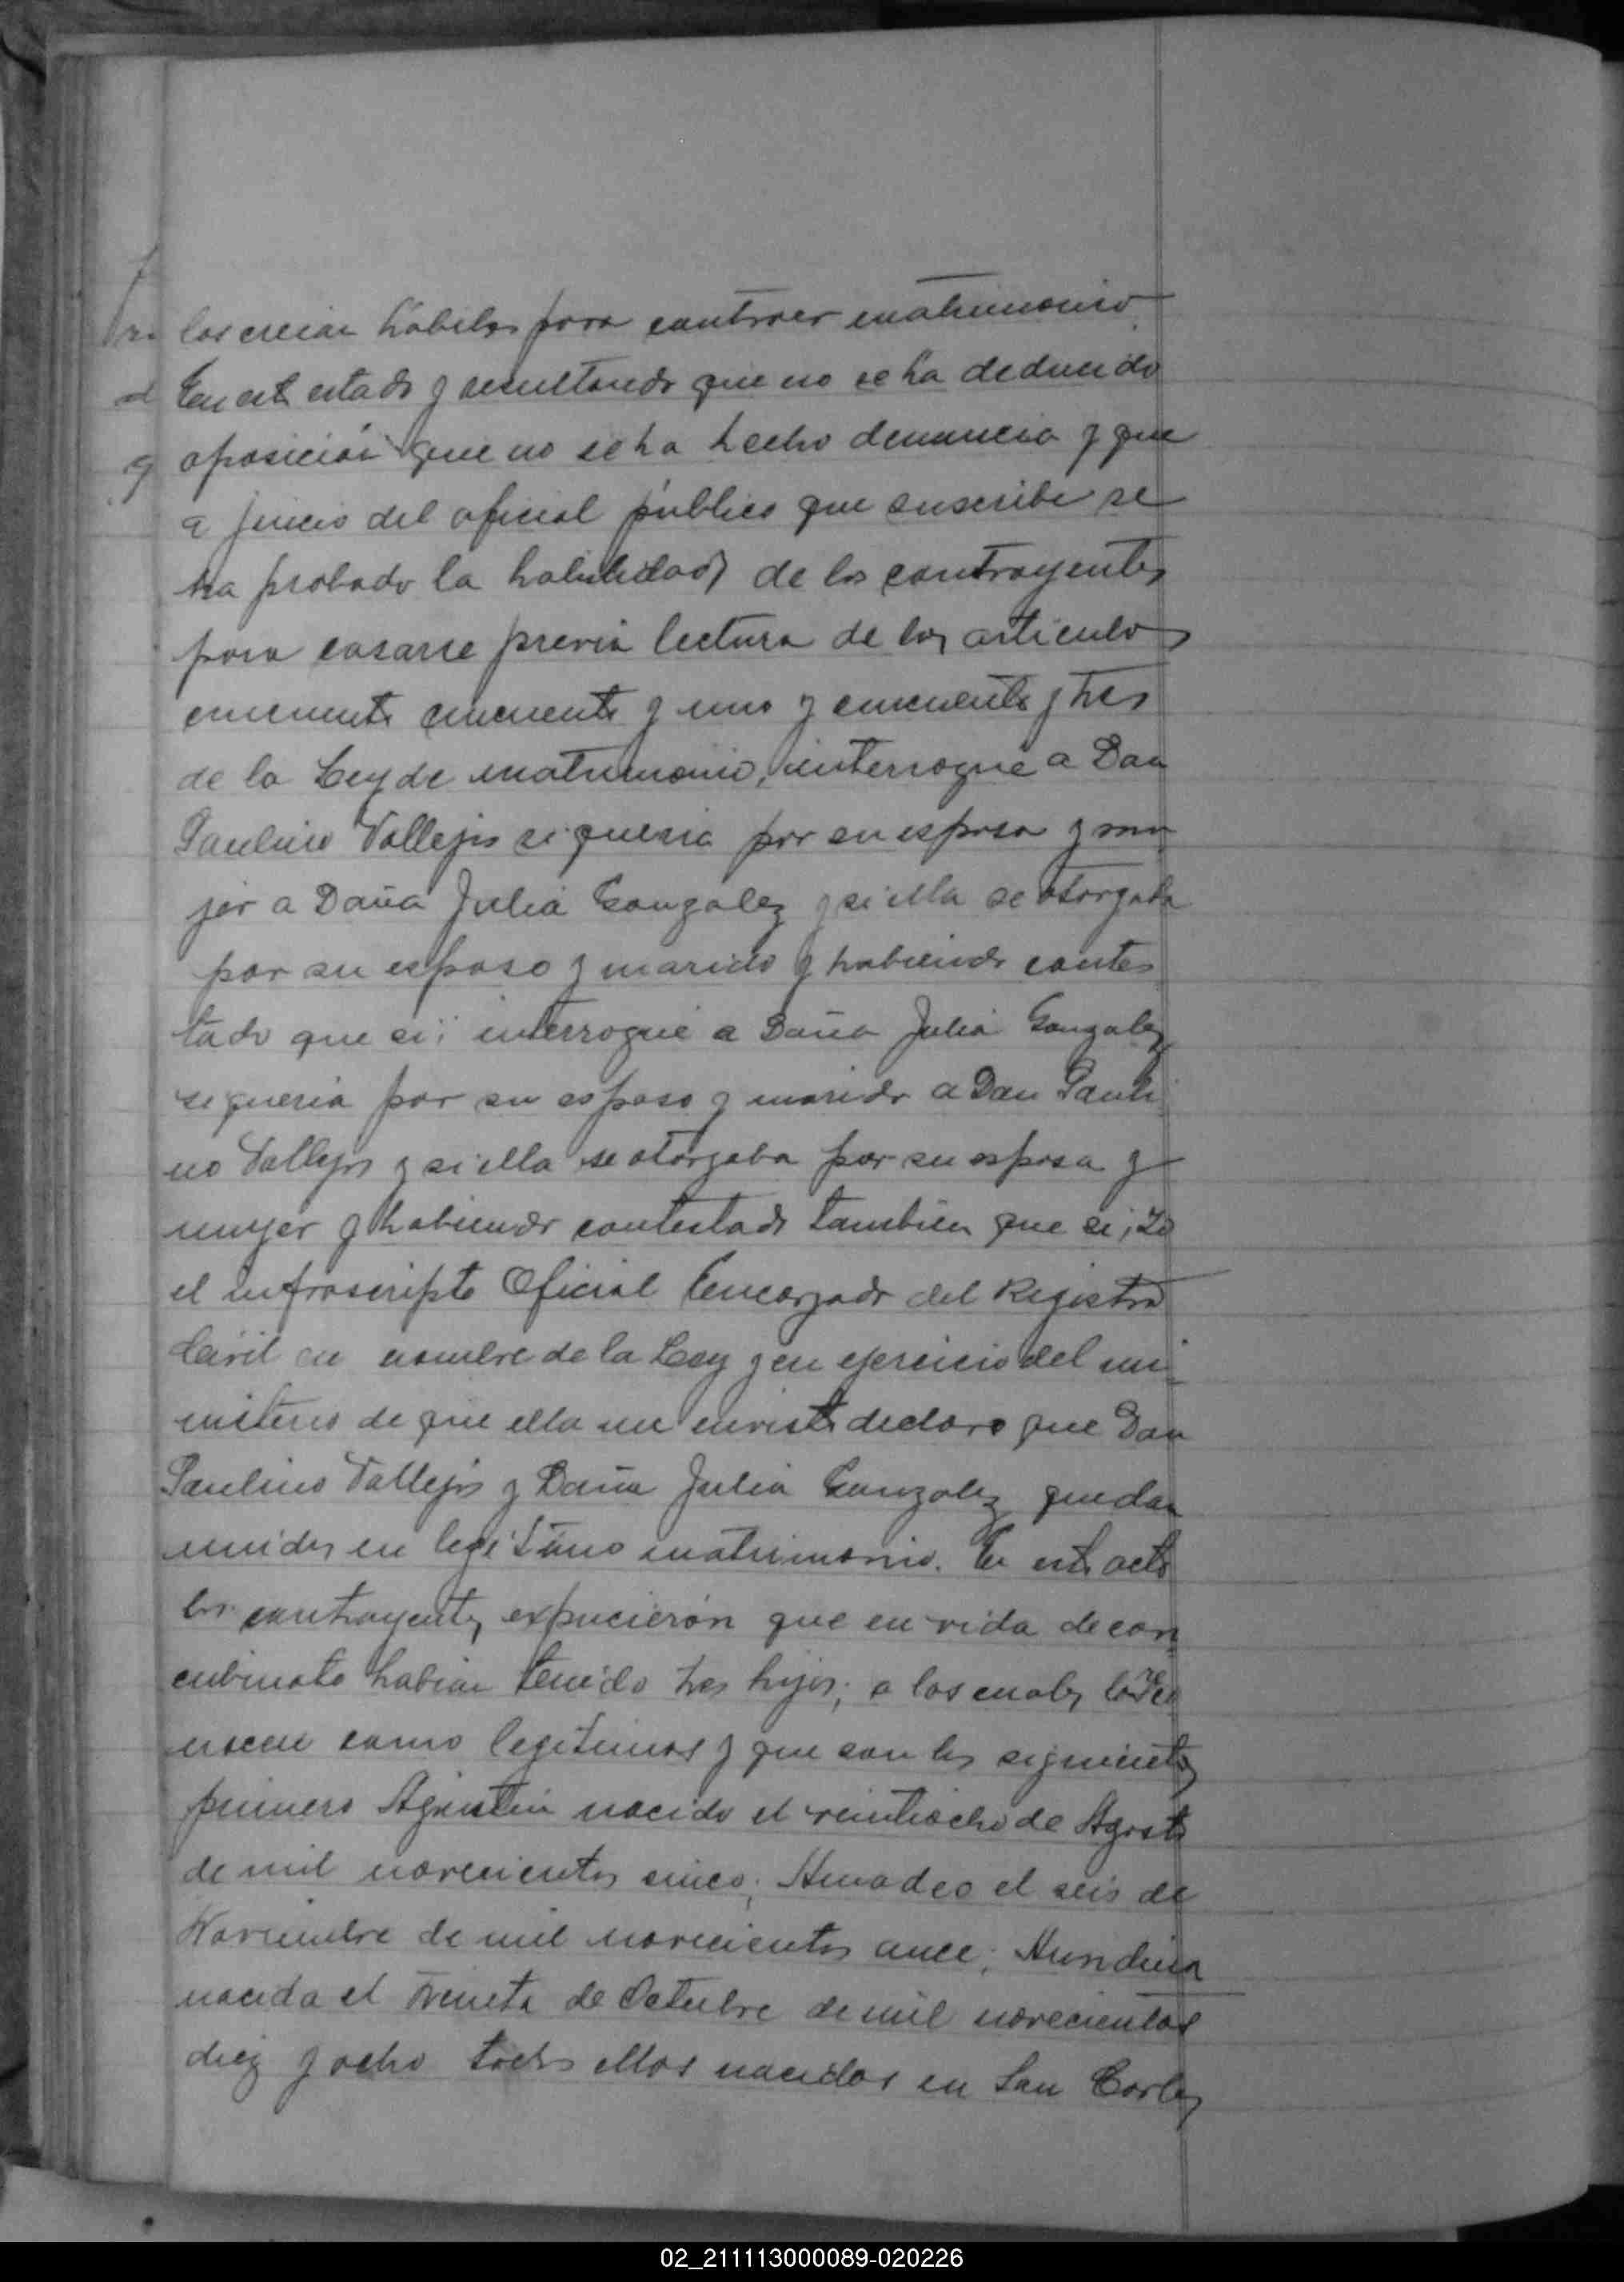 los creian habiles para contraer matrimonio
En est estado y resultando que no se ha deducido
oposición que no se ha hecho denuncia y que
a juicio del oficial público que suscribe se
ha probado la habilidad de los contrayentes
para casarse previa lectura de los articulos
cincuenta cincuenta y uno y cincuenta y tres
de la Ley de matrimonio, interrogué a Don
Paulino Vallejos si queria por su esposa y mu
jer a Doña Julia Gonzalez y si ella se otorgaba
por su esposo y marido y habiendo contes
tado que si; interrogué a Doña Julia Gonzalez
si queria por su esposo y marido a Don Pauli
no Vallejos y si ella se otorgaba por su esposa y
mujer y habiendo contestado tambien que si; Yo
el infrascripto Oficial Encargado del Registro
Civil en nombre de la Ley y en ejercicio del mi
nisterio de que ella me enviste declaro que Don
Paulino Vallejos y Doña Julia Gonzalez quedan
unidos en legitimo matrimonio. En este acto
los contrayentes expucierón que en vida de con
cubinato habian tenido tres hijos; a los cuales los reco
nocen como legitimos y que son los siguientes
primero Agustin nacido el veintiocho de Agosto
de mil novecientos cinco; Amadeo el seis de
Noviembre de mil novecientos once;
nacida el treinta de Octubre de mil novecientos
diez y ocho todos ellos nacidos en San Carlos
02_211113000089-020226